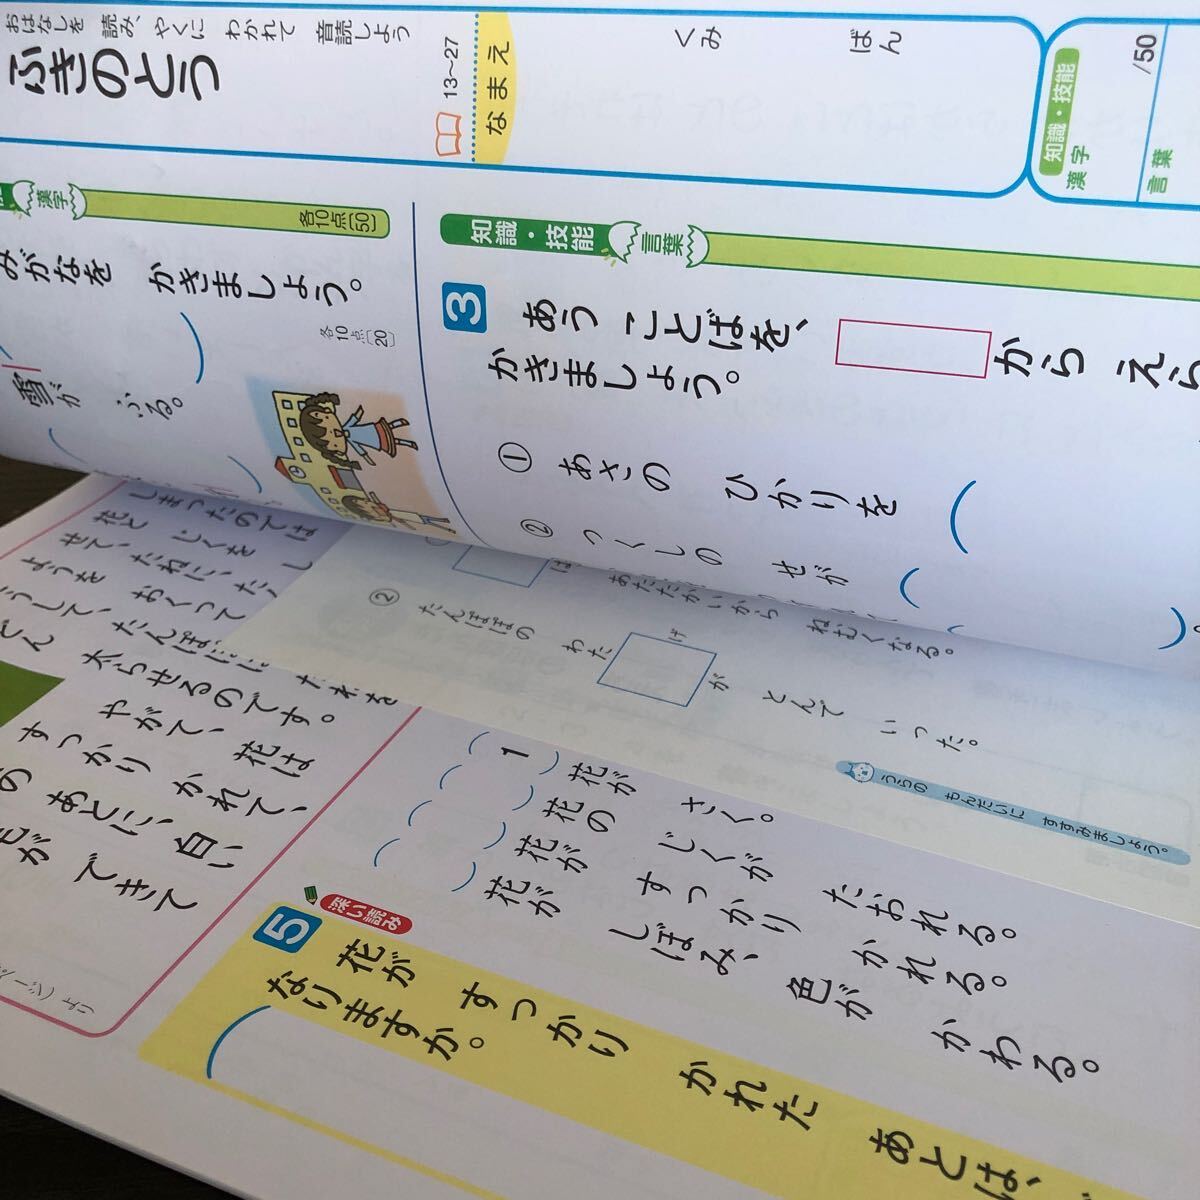 おはなしを 読み、やくに わかれて 音読しよう
ふきのとう
13〜27
なまえ
くみ
ばん
知識・技能
漢字
/50
言葉
漢字
各10点〔50〕
みがなを かきましょう。
各10点〔20〕
雪が ふる。
知識・技能
言葉
3 あう ことばを、 から えら
かきましょう。
① あさの ひかりを
② つくしの せが
あたたかいから ねむくなる。
② たんぽぽの わた げ が とんで いった。
うらの もんだいに すすみましょう。
しまったのでは
花と じくを
せて、たねに、たく
ようを おくって
太らせるのです。
やがて、花は
すっかり かれて、
あとに、白い
できて
1 花が さく。
花の じくが たおれる。
花が すっかり かれる。
花が しぼみ、色が かわる。
深い読み
5 花が すっかり かれた あとは、
なりますか。